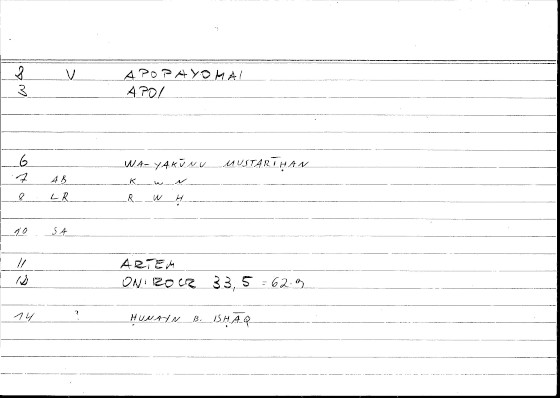 8 V APOPAYOMAI
3 APOI
6 WA-YAKŪNU MUSTARĪḤAN
7 AB K W N
8 LR R W Ḥ
10 SA
11 ARTEM
12 ONIROCR 33,5 = 62.9
14 ḤUNAYN B. ISḤĀQ